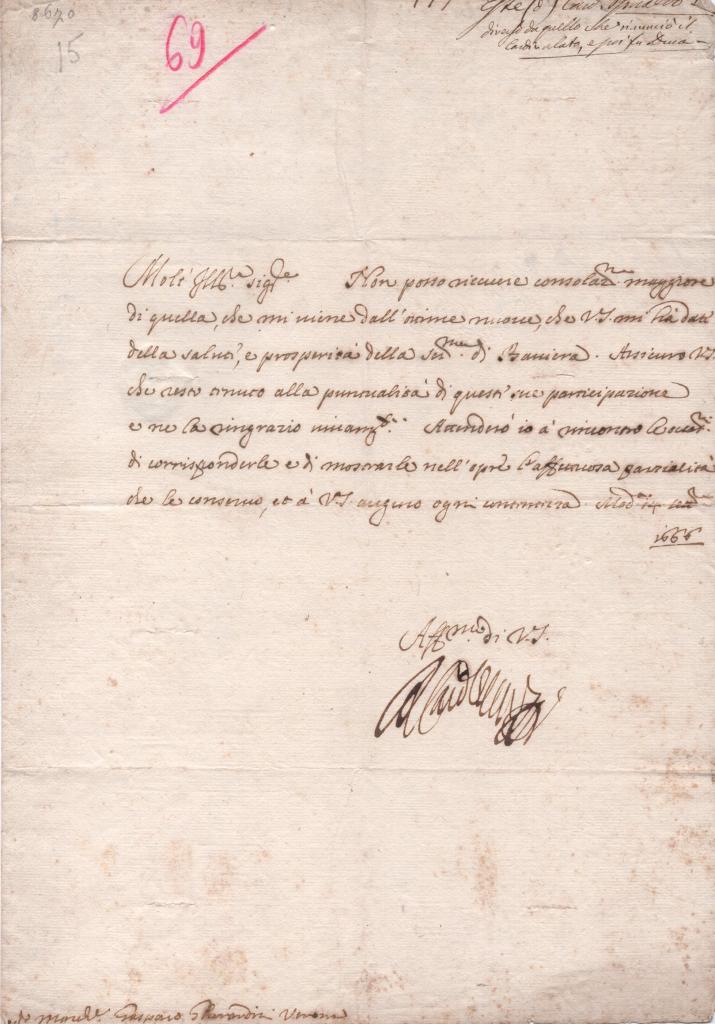 8620
15
69
diverso da quello che rinunciò il
Cardinalato, e poi fu Duca
Molt' Ill.re sig.re Non posso riceuere consolaz.ne maggiore
di quella, che mi viene dall'ottime nuoue, che V.S. mi hà dati
della salute, e prosperità della Ser.ma di Bauiera. Assicuro V.S.
che resto tenuto alla puntualità di queste sue participazione
e ne la ringrazio
Attenderò io à rincontro le
di corrisponderle e di mostrarle nell'opre l'affettuosa parzialità
che le conseruo, et à V.S. auguro ogni contentezza. Mod.a
1666
Aff.mo di V.S.
Gasparo Gherardini Verona